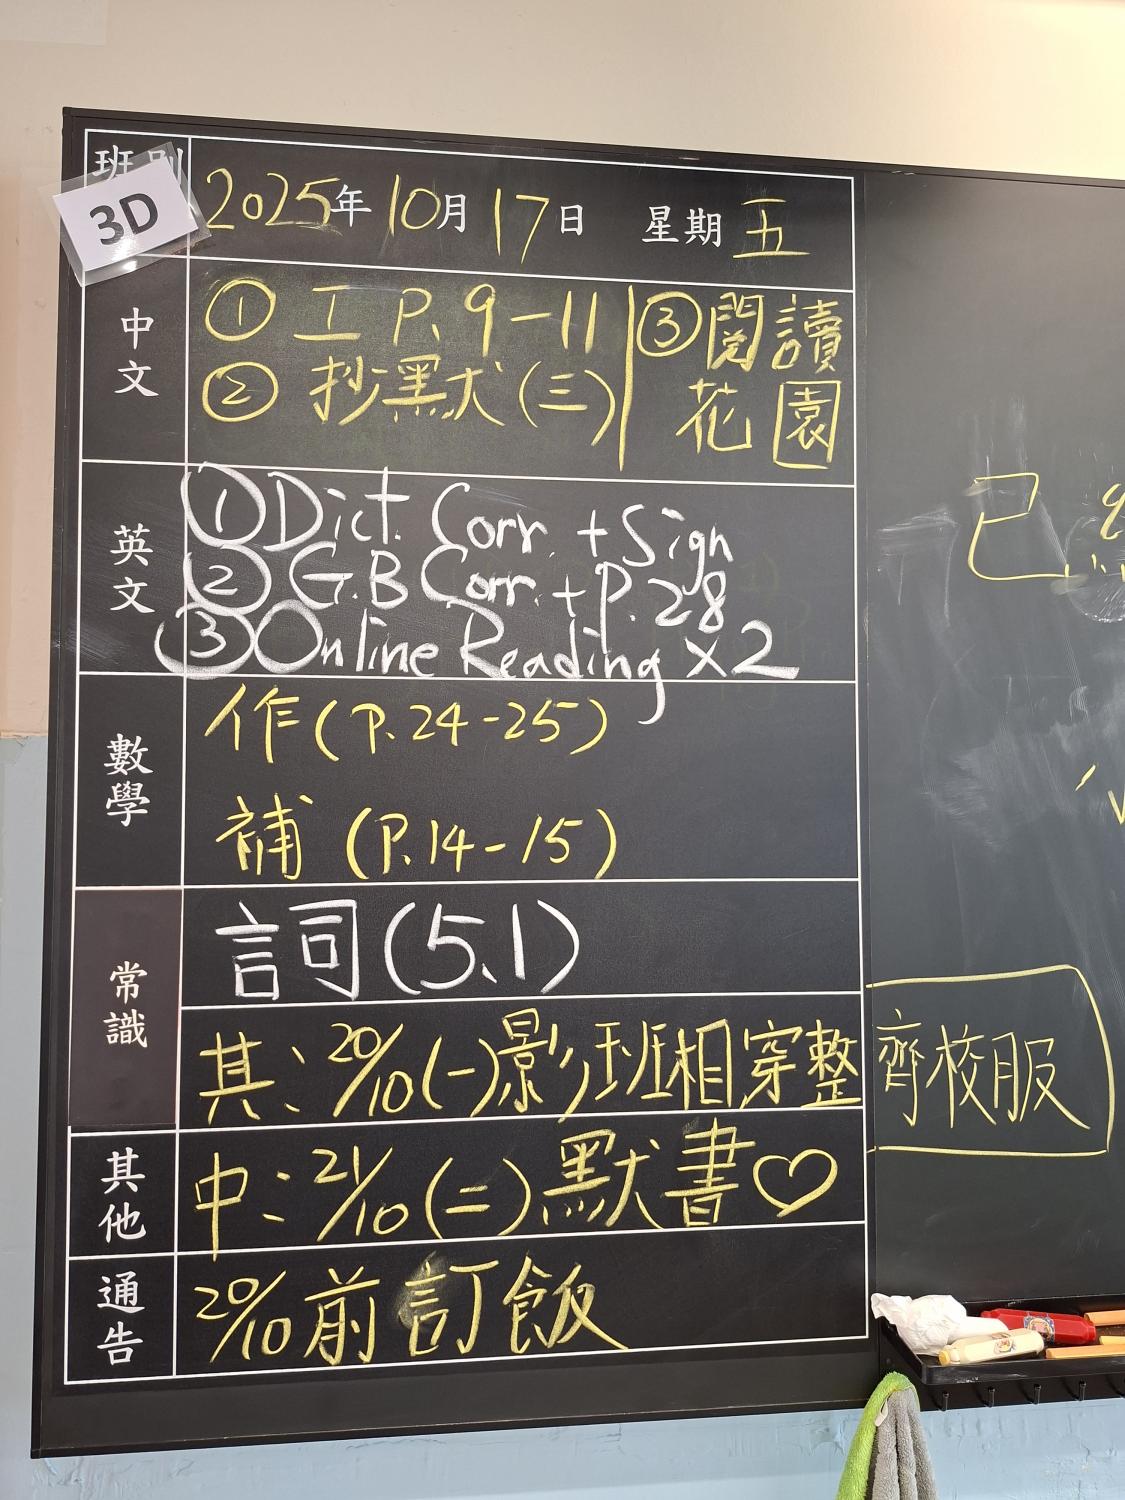 班別
3D
2025年 10月 17日 星期 五
中文
① 工 P. 9-11
② 抄默(三)
③ 閱讀
花園
英文
① Dict. Corr. + Sign
② G.B Corr. + P. 28
③ Online Reading x2
數學
作(P.24-25)
補 (P.14-15)
常識
詞(5.1)
其: 20/10(一)影班相穿整齊校服
其他
中: 21/10(二)默書♡
通告
20/10前訂飯
已